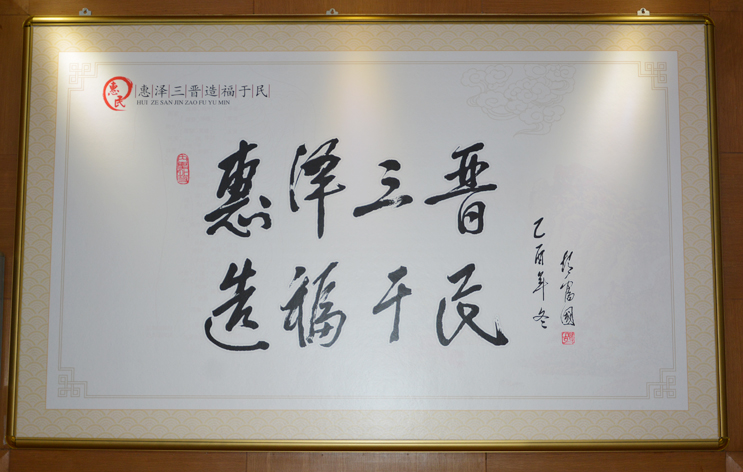 惠民
惠泽三晋造福于民
HUI ZE SAN JIN ZAO FU YU MIN
惠泽三晋
造福于民
乙酉年冬